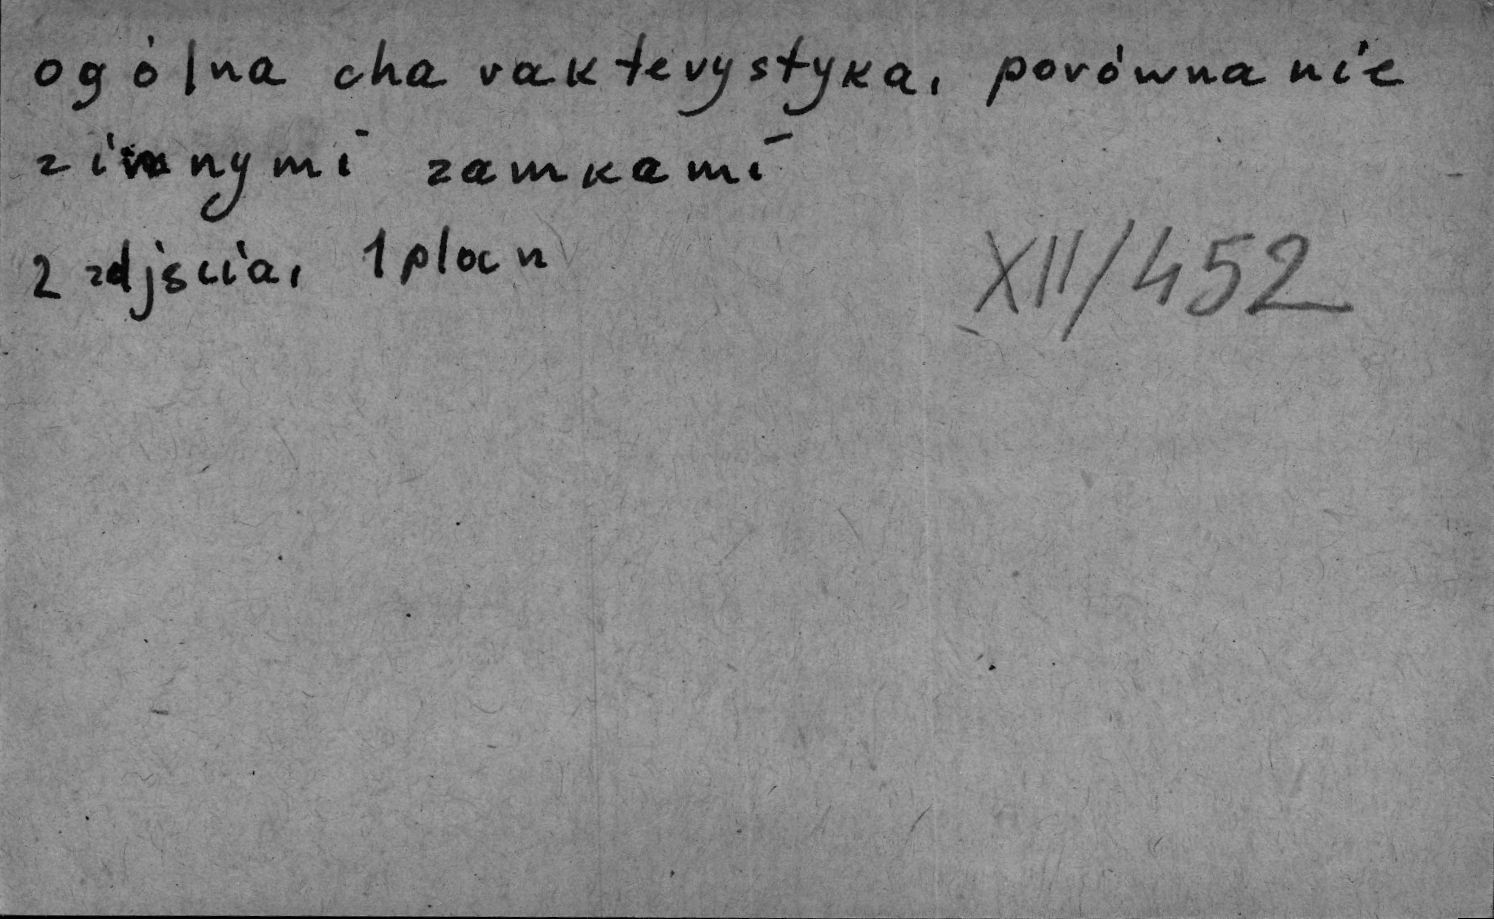 ogólna charakterystyka, porównanie
z innymi zamkami
2 zdjścia, 1 plan
XII/452